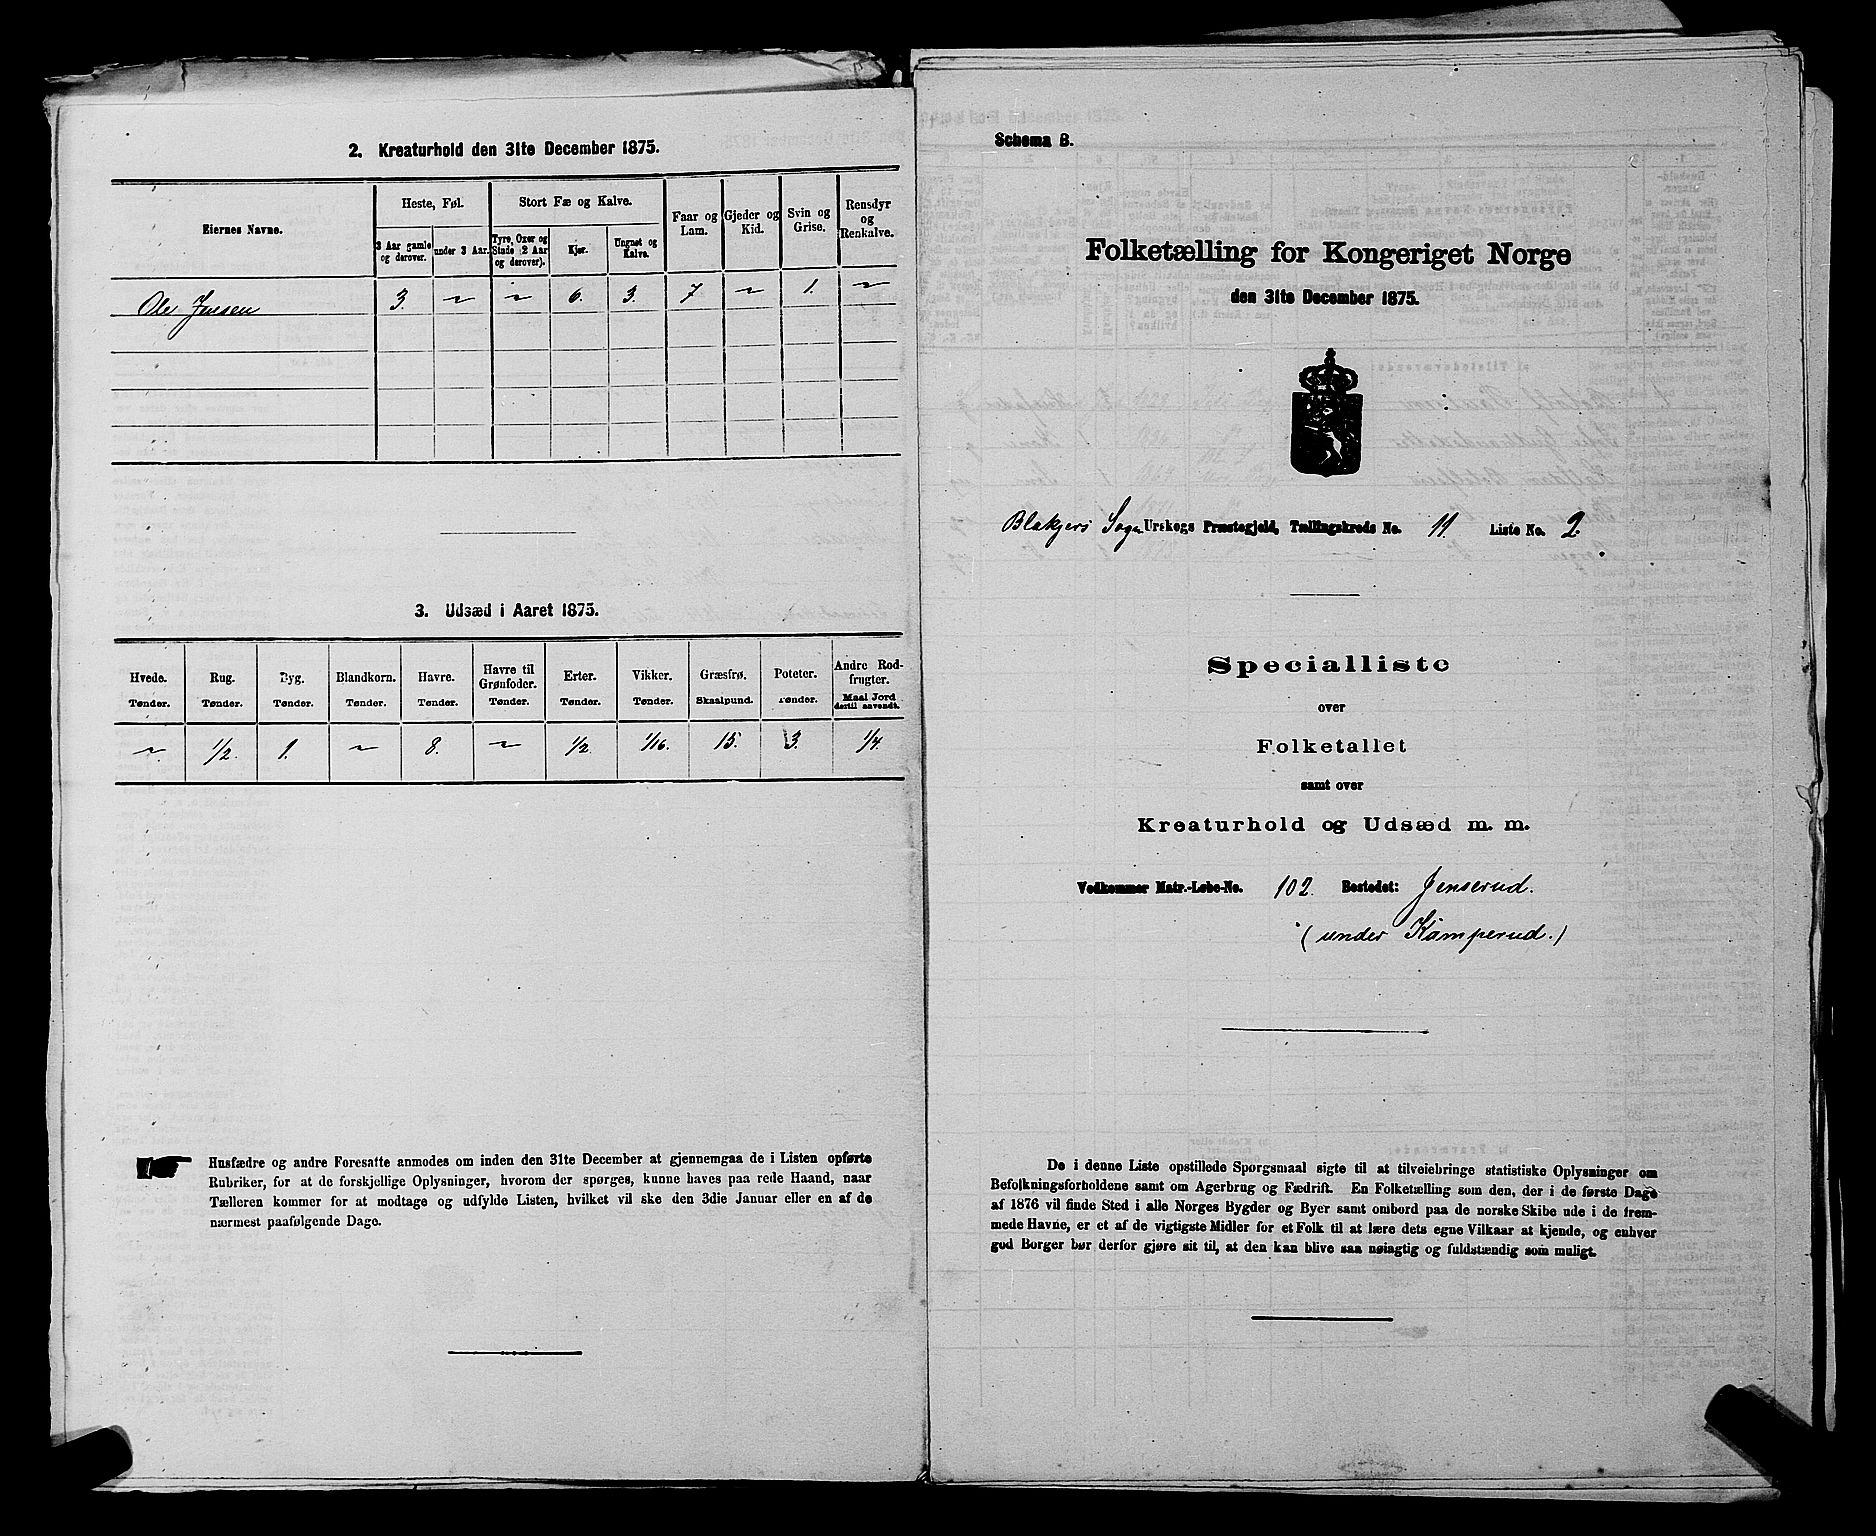 2. Kreaturhold den 31te December 1875.
Eiernes Navne.
Heste, Føl.
Stort Fæ og Kalve.
Faar og Lam.
Gjeder og Kid.
Svin og Grise.
Rensdyr og Renkalve.
3 Aar gamle og derover.
under 3 Aar.
Tyre, Oxer og Stude (2 Aar og derover).
Kjør.
Ungnøt og Kalve.
Ole Jensen 3. ~ ~ 6. 3. 7 ~ 1. ~
3. Udsæd i Aaret 1875.
Hvede. Rug. Byg. Blandkorn. Havre. Havre til Grønfoder. Erter. Vikker. Græsfrø. Poteter. Andre Rodfrugter.
Tønder. Tønder. Tønder. Tønder. Tønder. Tønder. Tønder. Tønder. Skaalpund. Tønder. Maal Jord dertil anvendt.
~ 1/2 1. ~ 8. ~ 1/2 1/16. 15. 3. 1/4.
Husfædre og andre Foresatte anmodes om inden den 31te December at gjennemgaa de i Listen opførte
Rubriker, for at de forskjellige Oplysninger, hvorom der spørges, kunne haves paa rede Haand, naar
Tælleren kommer for at modtage og udfylde Listen, hvilket vil ske den 3die Januar eller en af de
nærmest paafølgende Dage.
Schema B.
Folketælling for Kongeriget Norge
den 31te December 1875.
Blakjers Sogn Urskogs Præstegjeld, Tællingskreds No. 11. Liste No. 2.
Specialliste
over
Folketallet
samt over
Kreaturhold og Udsæd m. m.
Vedkommer Matr.-Løbe-No. 102. Bostedet: Jenserud.
(under Kamperud.)
De i denne Liste opstillede Spørgsmaal sigte til at tilveiebringe statistiske Oplysninger om
Befolkningsforholdene samt om Agerbrug og Fædrift. En Folketælling som den, der i de første Dage
af 1876 vil finde Sted i alle Norges Bygder og Byer samt ombord paa de norske Skibe ude i de frem-
mede Havne, er et af de vigtigste Midler for et Folk til at lære dets egne Vilkaar at kjende, og enhver
god Borger bør derfor gjøre sit til, at den kan blive saa nøiagtig og fuldstændig som muligt.